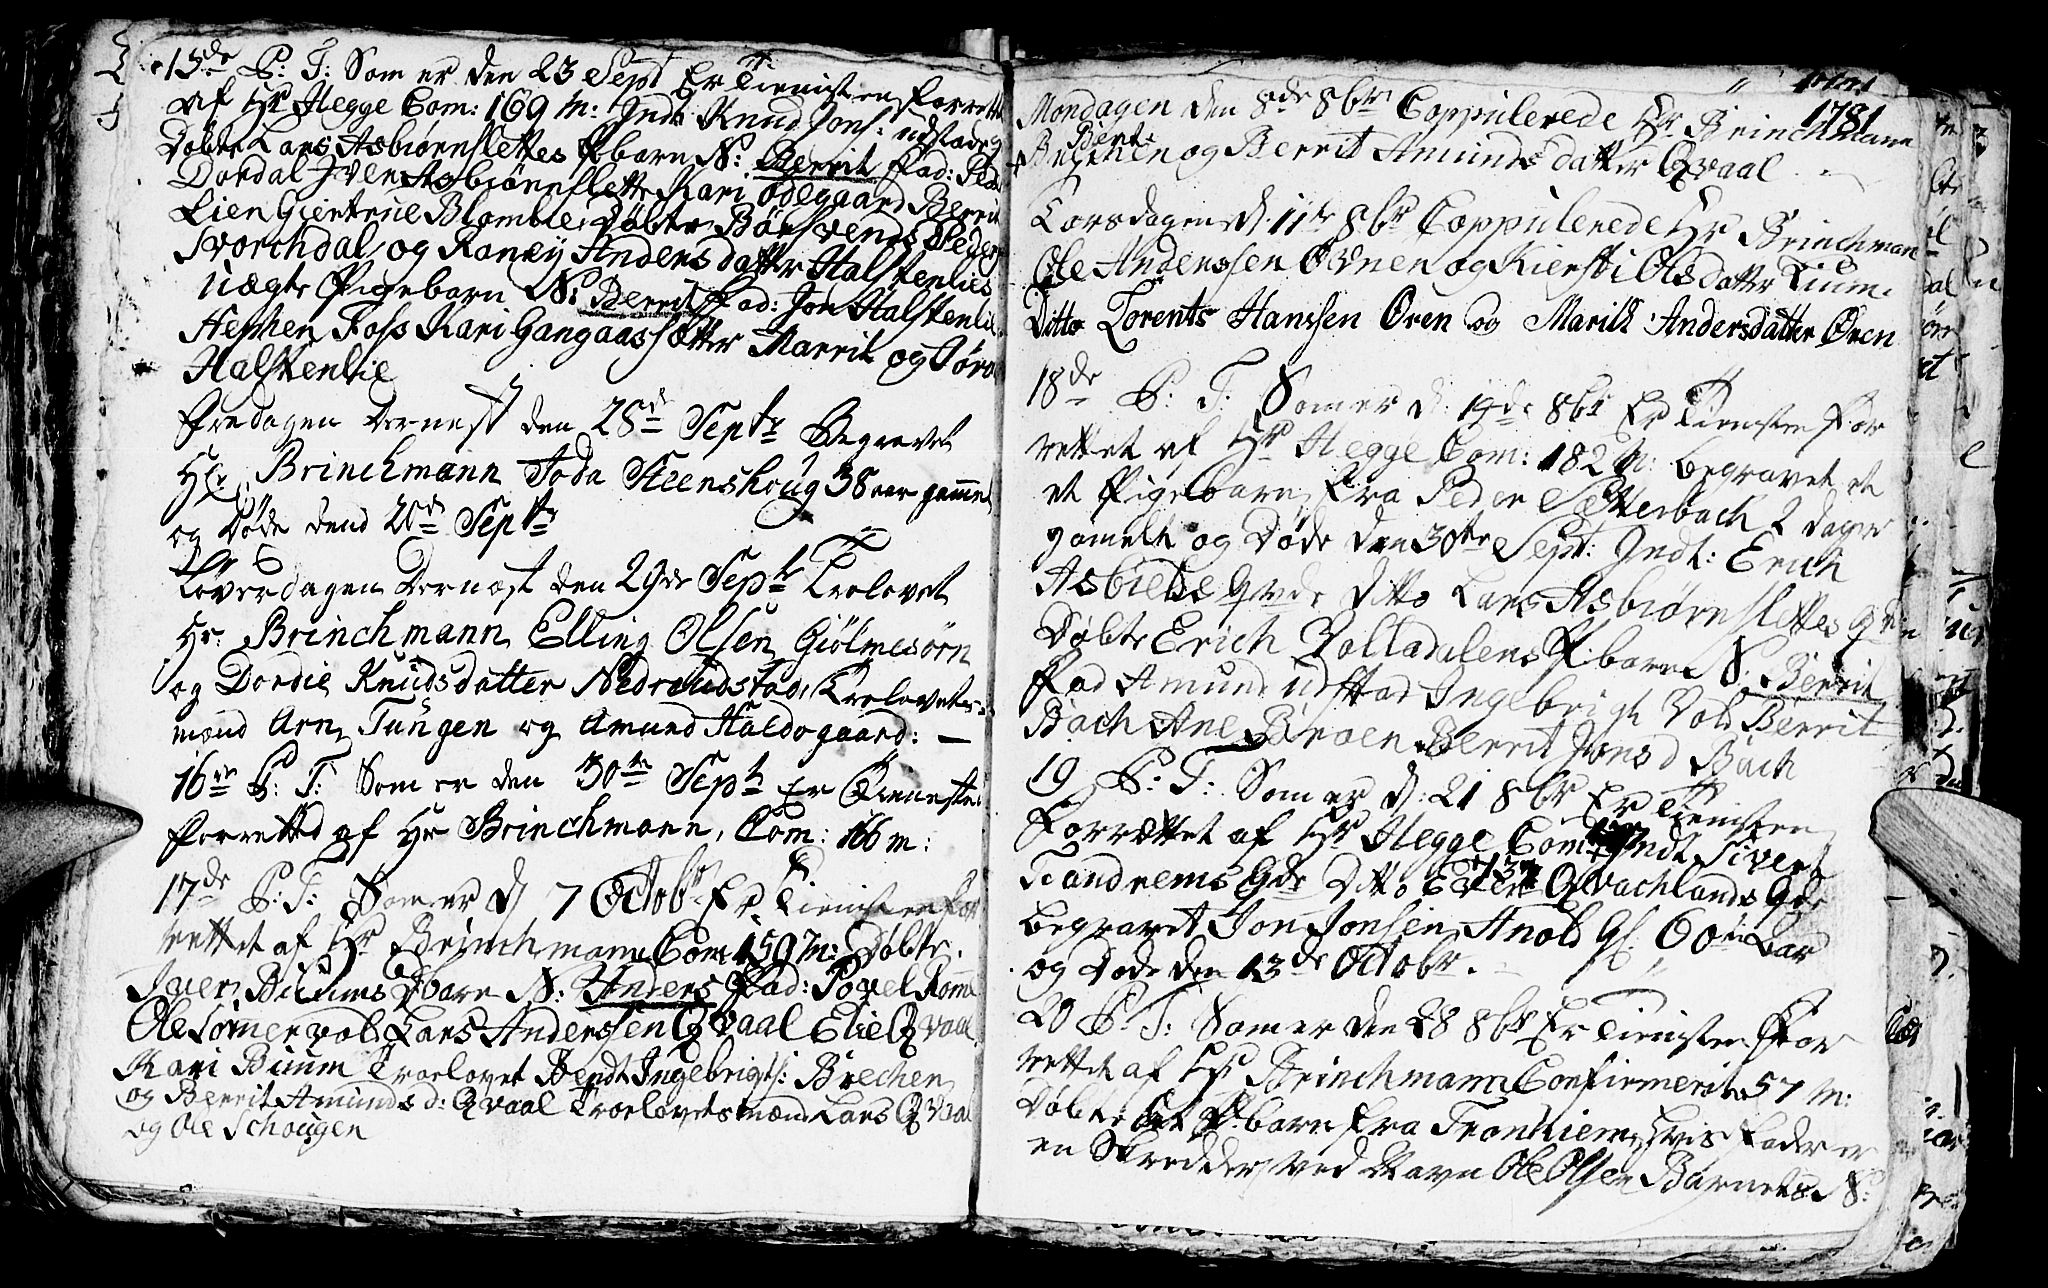 15de P: T: Som er den 23 Sept Er Tienisten forrettet
af Hr Hegge Com: 169 m: Indt Knud Jons: udstad g
Døbte Lars Asbiørnslettes P barn N: Berrit Fad: Peder
Dordal Iven Asbiørnslett Kari Ødegaard Berrit
Lien Giertrue Blomlie, Døbte
Svorchdal og Raney Andersdatter Halstenlies
Uægte Pigebarn N: Berrit Fad: Jon Halstenlie
Foss Kari Gangaassætter Marrit og
Halstenlie
Fredagen Dernest den 28de Septr Begravet
Hr. Brinchmann Toda Steenshoug 38 aar gammel
og Døde dend 20de Septr
Løverdagen Dernæst den 29de Septr Trolovet
Hr. Brinchmann Elling Olsen Giølmesørn
og Dordie Knudsdatter Nedreudstad, Trolovelses=
mænd Arn Tungen og Amund Haldogaard: —
16de P: T: Som er den 30te Septr Er Tienesten
forretted af Hr Brinchmann, Com: 166 m:
17de P: T: Som er d 7 Octobr Er Tienisten for
rettet af Hr Brinchmann Com: 159 m: Døbte
Iver Buums D barn N: Anders Fad: Povel
Ole Somervold Lars Anderssen Qvaal Elie Qvaal
Kari Buum Troelovet Bendt Ingebrigts: Brechen
og Berrit Amunds d: Qvaal Troelovelsmænd Lars Qvaal
og Ole Schougen
1781
Mondagen den 8de 8br Coppulerede Hr Brinchmann
Bent
og Berrit Amunds datter Qvaal
Torsdagen d: 11te 8br Coppulerede Hr Brinchman
Ole Anderssen Øvnen og Kiersti Olsdatter Lium
Ditto Lorents Hanssen Øren og Marith Andersdatter Øren
18de P: T: Som er d: 14de 8br Er Tiensten For
rettet af Hr Hegge Com: 182 m: begravet et
et Pigebarn fra Peder Sætterbach 2 dager
gamelt og Døde den 30te Sept: Indt: Erich
Asbiels Qvde Ditto Lars Asbiørnslettes Qvin
Døbte Erich Volladalens P: barn N: Berrit
Fad Amund udstad Ingebrigt Vold Berrit
Bach Ane Broen Berrit Jons d Bach
19 P: T: Som er d: 21 8br Er Tienisten
Forrættet af Hr Hegge Com: Indt Sivert
137
Tandrems Qde Ditto Qvachlands Qde
begravet Jon Jonsen Anold Gl. 60 aar
og Døde den 13de Octobr.
20 P: T: Som er den 28 8br Er Tienisten For
rettet af Hr Brinchmann Confirmerit 57 m:
Døbte Et P: barn fra Tronhiem, hvis Fader er
en Skredder ved Navn Ole Olsen Barnets N: